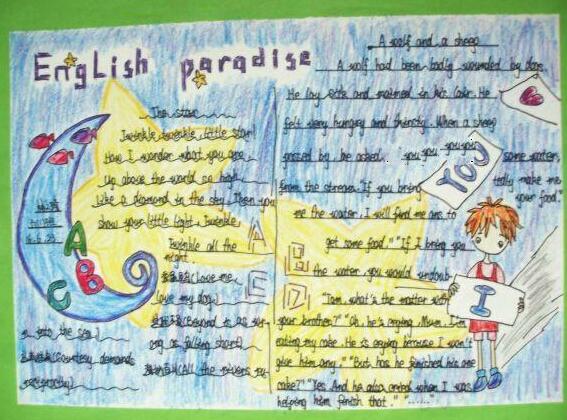 English paradise
The star
Twinkle, twinkle, little star!
How I wonder what you are
Up above the world so high
Like a diamond in the sky. Then you
show your little light, Twinkle,
Twinkle all the
night.
(Love me,
love my dog)
(Beyond to as sur-
ong as falling short)
(All the rivers ru-
n into the sea)
(Courtesy demands
reciprocity)
A
B
C
A
B
C
D
A wolf and a sheep
A wolf had been badly wounded by dogs.
He lay sick and maimed in his lair. He
felt very hungry and thirsty. When a sheep
passed by, he asked
you you you you
YOU
some water
from the stream. If you bring
me the water, I will find me ans to
get some food." "If I bring you
the water, you would undoub-
tedly make me
your food."
"Tom, what's the matter with
your brother?" "Oh, he's crying, Mum. I'm
eating my cake. He is crying because I won't
give him any." "But has he finished his one
cake?" "Yes. And he also cried when I was
helping him finish that." "......"
I